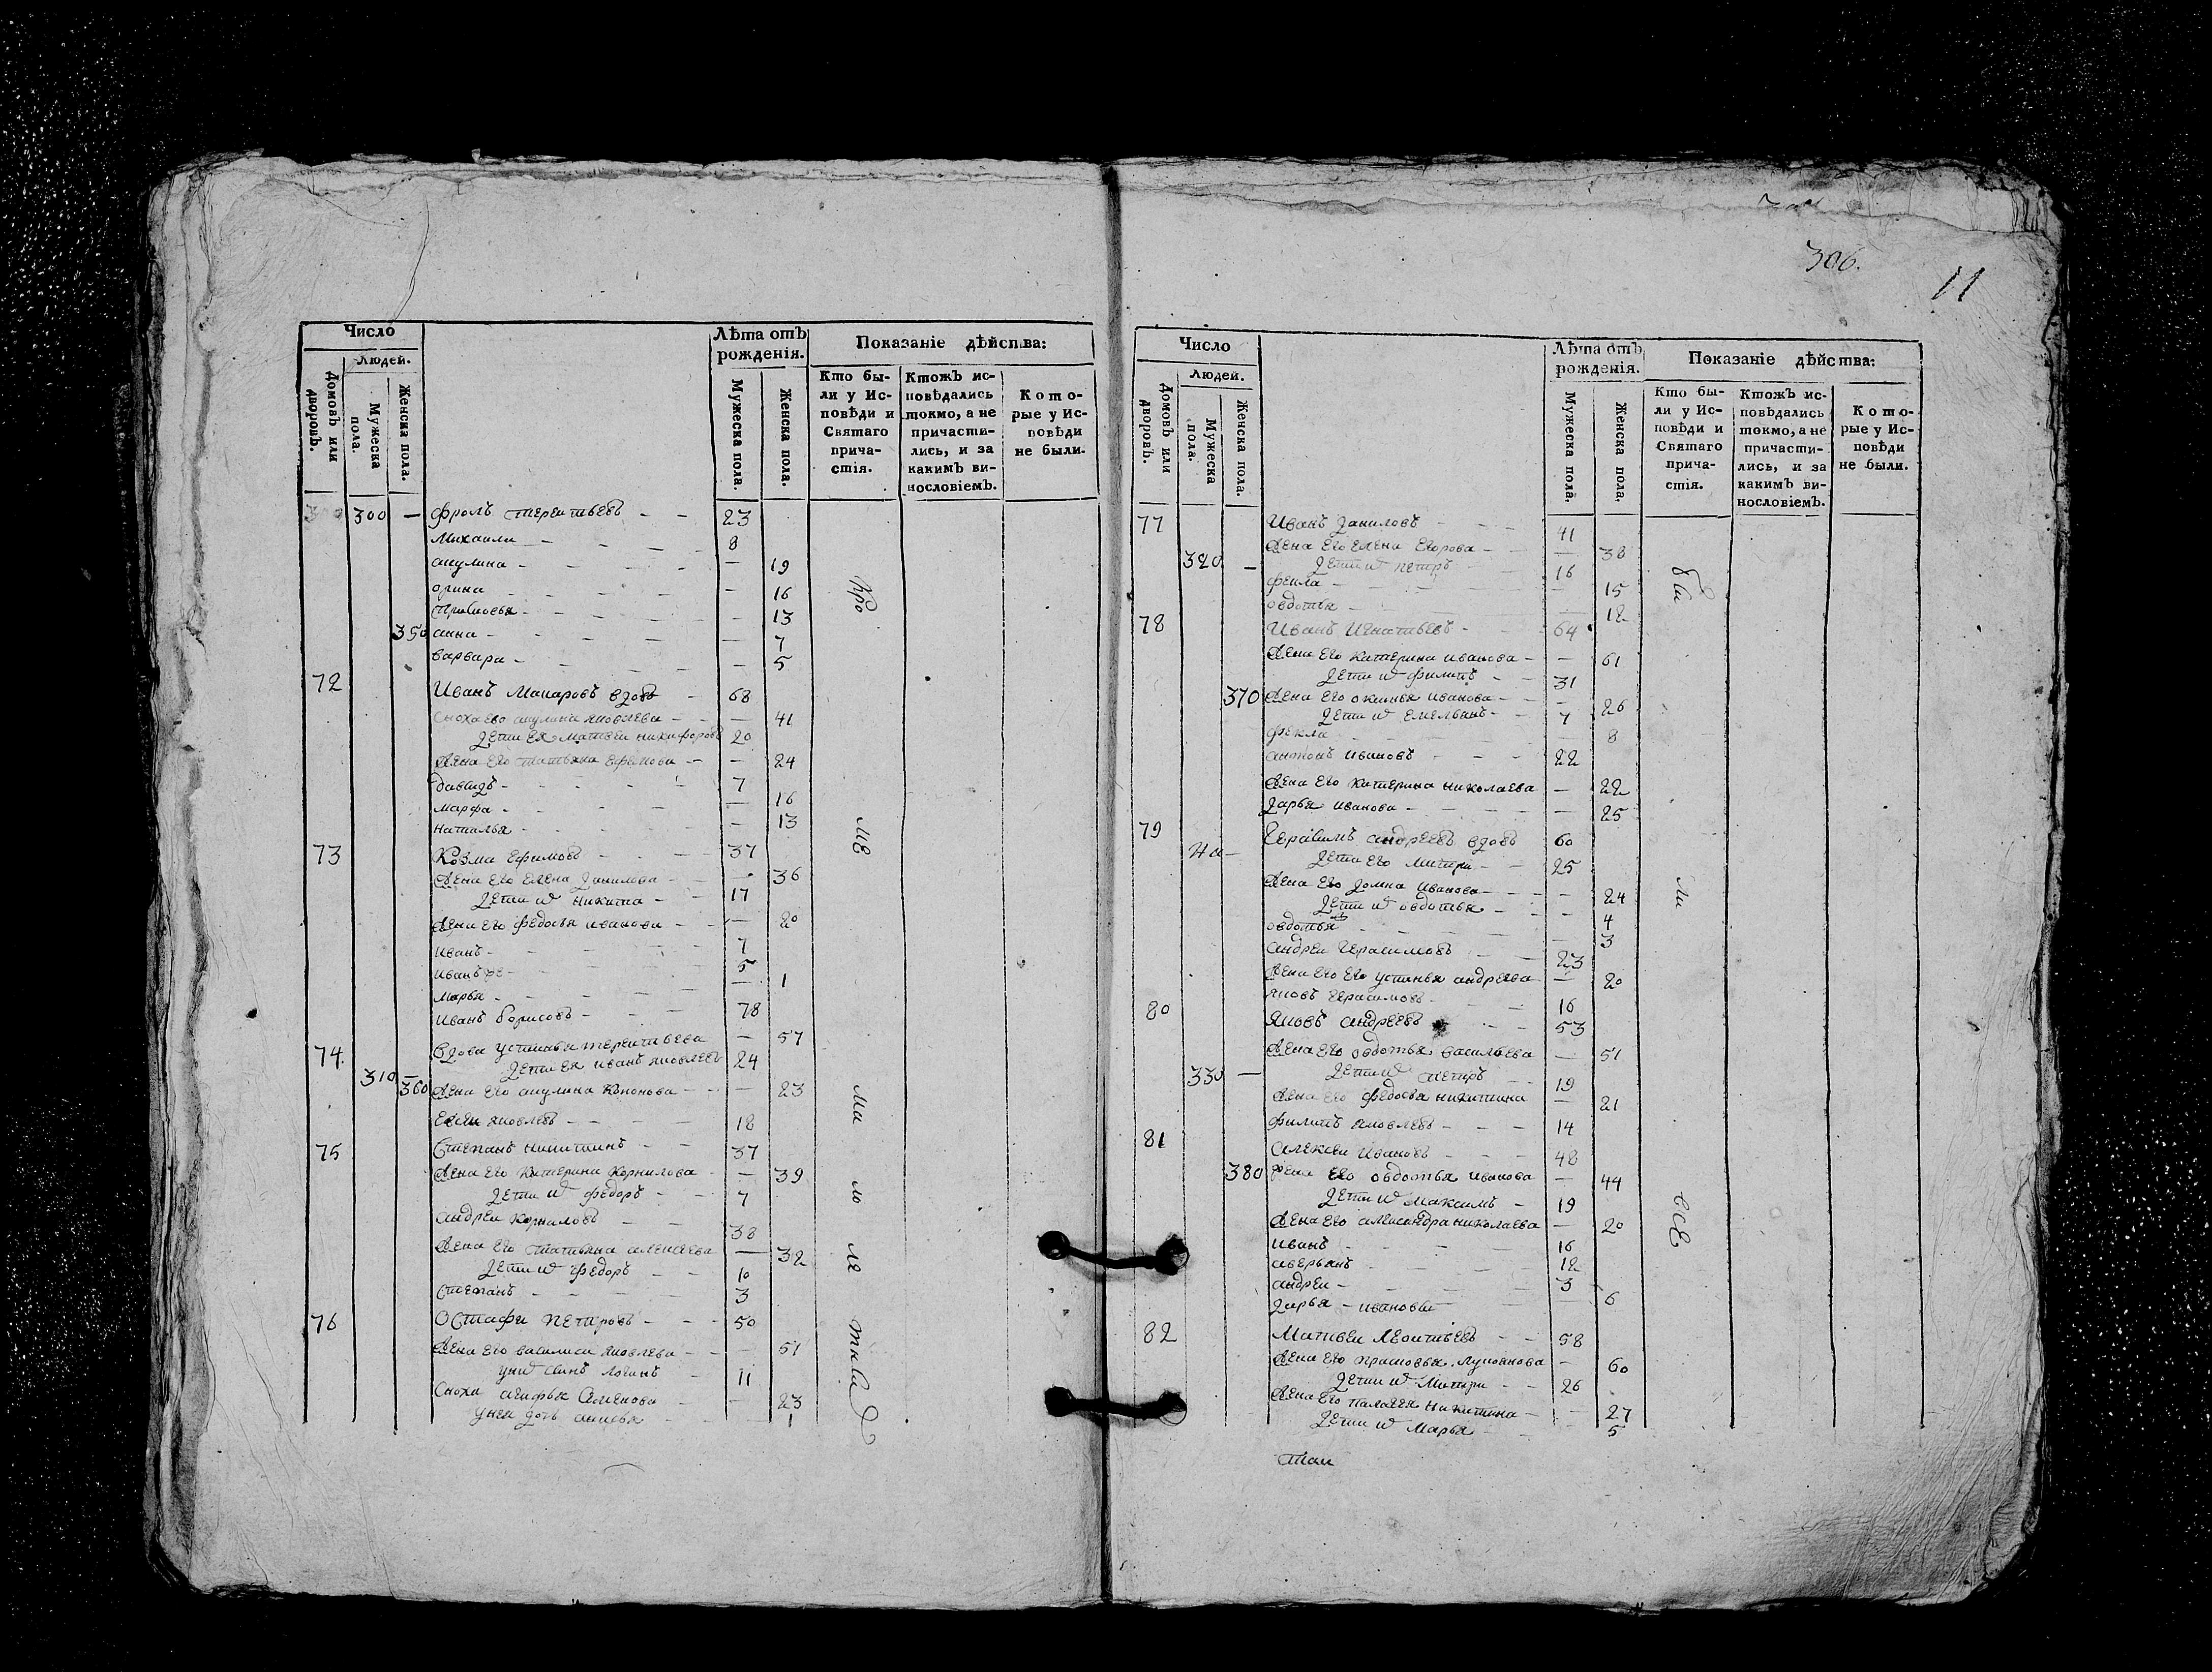 306.
11
Число
Лѣта отъ рожденія.
Показаніе дѣйства:
Людей.
Домовъ или дворовъ.
Мужеска пола.
Женска пола.
Мужеска пола.
Женска пола.
Кто были у Исповѣди и Святаго причастія.
Ктожъ исповѣдались токмо, а не причастились, и за какимъ винословіемъ.
Которые у Исповѣди не были.
300 — фролъ терентьевъ - - 23
Михаила - - 8
акулина - - 19
орина - - 16
13
350 анна - - 7
варвара - - 5
72 Иванъ Макаровъ вдовъ - 68
сноха его акулина яковлева - - 41
дети ея матвеи никифоровъ 20
жена его татьяна ефимова - - 24
давидъ - - 7
марфа - - 16
наталья - - 13
73 Козма Ефимовъ - - 37
жена его елена данилова - - 36
дети ихъ никита - - 17
жена его федосья иванова - - 20
иванъ - - 7
иванъ же - - 5
марья - - 1
иванъ борисовъ - - 78
74. вдова устинья терентьева - 57
дети ея иванъ яковлевъ 24
310 —
360 жена его акулина Кононова - - 23
яковлевъ - - 18
75 Степанъ никитинъ - - 37
жена его катерина корнилова - 39
дети ихъ федоръ - - 7
андреи корниловъ - - 38
жена его татьяна алексеева - 32
дети ихъ федоръ - - 10
степанъ - - 3
76 Остафи петровъ - - 50
жена его василиса яковлева - - 51
у них сынъ логинъ - 11
сноха агафья семенова - - 23
у неи дочь - - 1
Число
Лѣта отъ рожденія.
Показаніе дѣйства:
Людей.
Домовъ или дворовъ.
Мужеска пола.
Женска пола.
Мужеска пола.
Женска пола.
Кто были у Исповѣди и Святаго причастія.
Ктожъ исповѣдались токмо, а не причастились, и за какимъ винословіемъ.
Которые у Исповѣди не были.
77 Иванъ даниловъ - - 41
жена его елена егорова - - 38
320 — дети ихъ петръ - 16
фекла - - 15
овдотья - - 12
78 Иванъ игнатьевъ - 64
жена его катерина иванова - - 61
дети ихъ филипъ - - 31
370 жена его оксинья иванова - - 26
дети ихъ емельянъ - - 7
фекла - - 8
антонъ ивановъ - - 22
жена его катерина николаева - 22
дарья иванова - - 25
79 Герасимъ андреевъ вдовъ 60
дети его митри - - 25
жена его домна иванова - - 24
дети ихъ овдотья - - 4
овдотья - - 3
андреи герасимовъ - 23
жена его его устинья андреева - 20
яковъ герасимовъ - 16
80 Яковъ андреевъ - - 53
жена его овдотья васильева - 51
330 — дети ихъ петръ - - 19
жена его федосья никитина - 21
филипъ яковлевъ - - 14
81 алексеи ивановъ - - 48
380 жена его овдотья иванова - 44
дети ихъ максимъ - 19
жена его александра николаева - 20
иванъ - - 16
аверьянъ - - 12
андреи - - 3
дарья - иванова - 6
82 Матвеи леонтьевъ - - 58
жена его прасковья лукоянова - 60
дети ихъ митри - - 26
жена его палагея никитина - - 27
дети ихъ марья - 5